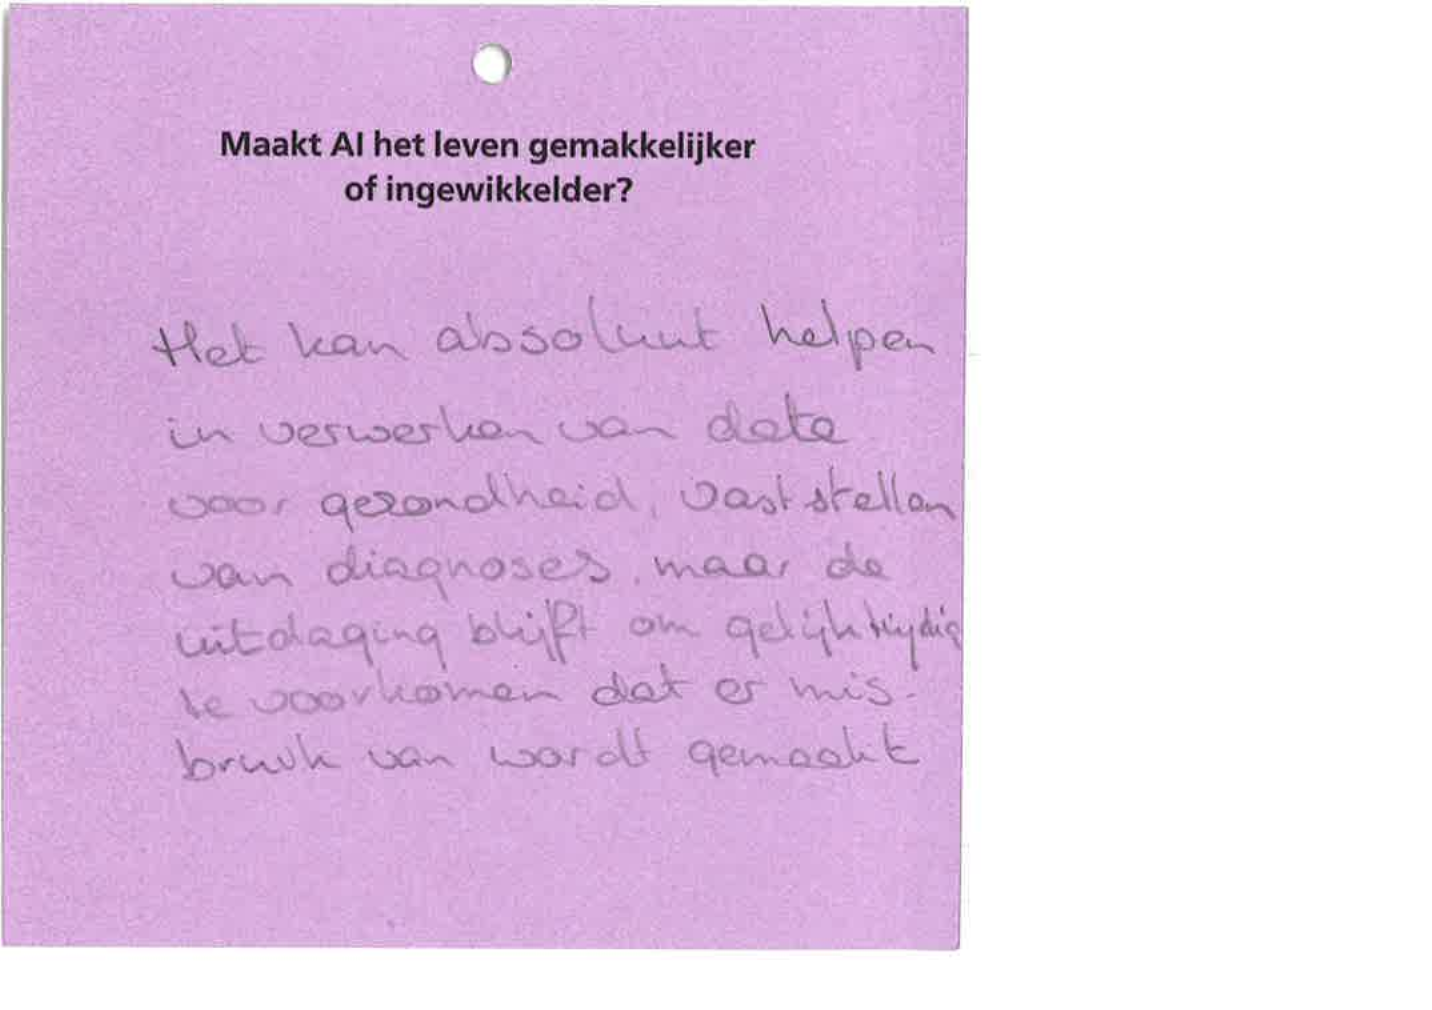 Maakt AI het leven gemakkelijker
of ingewikkelder?
Het kan absoluut helpen
in verwerken van data
voor gezondheid, vast stellen
van diagnoses, maar de
uitdaging blijft om gelijktijdig
te voorkomen dat er mis-
bruik van wordt gemaakt